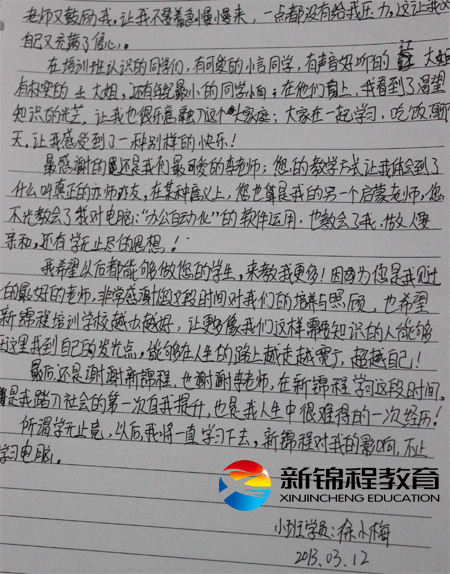 老师又鼓励我，让我不要着急慢慢来，一点都没有给我压力。这让我对
自己又充满了信心。
在培训班认识的同学们，有可爱的小言同学，有声音好听的江大姐
有朴实的土大姐，还有年纪最小的同学小雨；在他们身上，我看到了渴望
知识的光芒，让我也很乐意融入了这个大家庭；大家在一起学习，吃饭，聊
天，让我感受到了一种别样的快乐！
最感谢的还是我们最可爱的李老师；您的教学方式让我体会到了
什么叫真正的亦师亦友，在某种意义上，您也算是我的另一个启蒙老师，您
不光教会了我对电脑："办公自动化"的软件运用，也教会了我，做人要
亲和，还有学无止尽的思想！
我希望以后都能够做您的学生，来教我更多！因为您是我见过
的最好的老师，非常感谢您这段时间对我们的培养与照顾，也希望
新锦程培训学校越办越好，让更多像我们这样需要知识的人能够
在这里找到自己的发光点，能够在人生的路上越走越宽广，超越自己！
最后还是谢谢新锦程，也谢谢李老师，在新锦程学习这段时间，
是我踏入社会的第一次自我提升，也是我人生中很难得的一次经历！
所谓学无止竟，以后我将一直学习下去，新锦程对我的影响，不止
学习电脑。
新锦程教育
XINJINCHENG EDUCATION
小班学员：徐小梅
2013.03.12